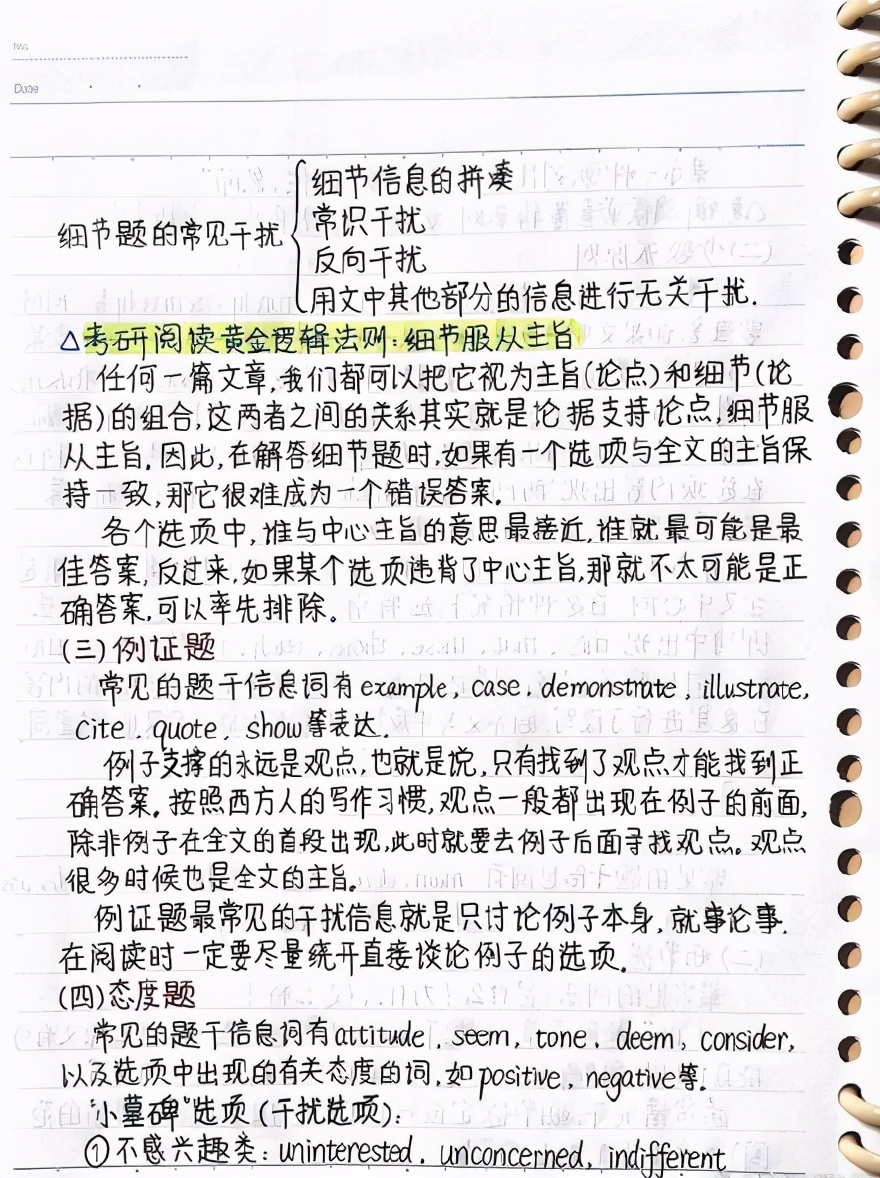 No.
Date
细节信息的拼凑
常识干扰
细节题的常见干扰
反向干扰
用文中其他部分的信息进行无关干扰.
△考研阅读黄金逻辑法则:细节服从主旨
任何一篇文章,我们都可以把它视为主旨(论点)和细节(论
据)的组合,这两者之间的关系其实就是论据支持论点,细节服
从主旨.因此,在解答细节题时,如果有一个选项与全文的主旨保
持一致,那它很难成为一个错误答案.
各个选项中,谁与中心主旨的意思最接近,谁就最可能是最
佳答案,反过来,如果某个选项违背了中心主旨,那就不太可能是正
确答案,可以率先排除。
(三)例证题
常见的题干信息词有example, case, demonstrate, illustrate,
cite, quote, show等表达.
例子支撑的永远是观点,也就是说,只有找到了观点才能找到正
确答案.按照西方人的写作习惯,观点一般都出现在例子的前面,
除非例子在全文的首段出现,此时就要去例子后面寻找观点。观点
很多时候也是全文的主旨。
例证题最常见的干扰信息就是只讨论例子本身,就事论事.
在阅读时一定要尽量绕开直接谈论例子的选项.
(四)态度题
常见的题干信息词有attitude, seem, tone, deem, consider,
以及选项中出现的有关态度的词,如positive, negative等.
"小墓碑"选项(干扰选项):
①不感兴趣类: uninterested, unconcerned, indifferent